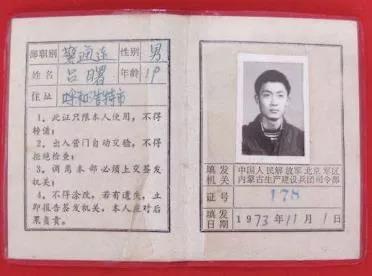 部职别 通连 性别 男
姓名 吕曙 年龄 19
住址 呼和浩特市
1、此证只限本人使用，不得
转借；
2、出入营门自动交验，不得
拒绝检查；
3、调离本部必须上交签发
机关；
4、不得涂改，若有遗失，立
即报告签发机关，本人应对后
果负责。
填发机关 中国人民解放军北京军区
内蒙古生产建设兵团司令部
证号 178
填发日期 1973年11月1日